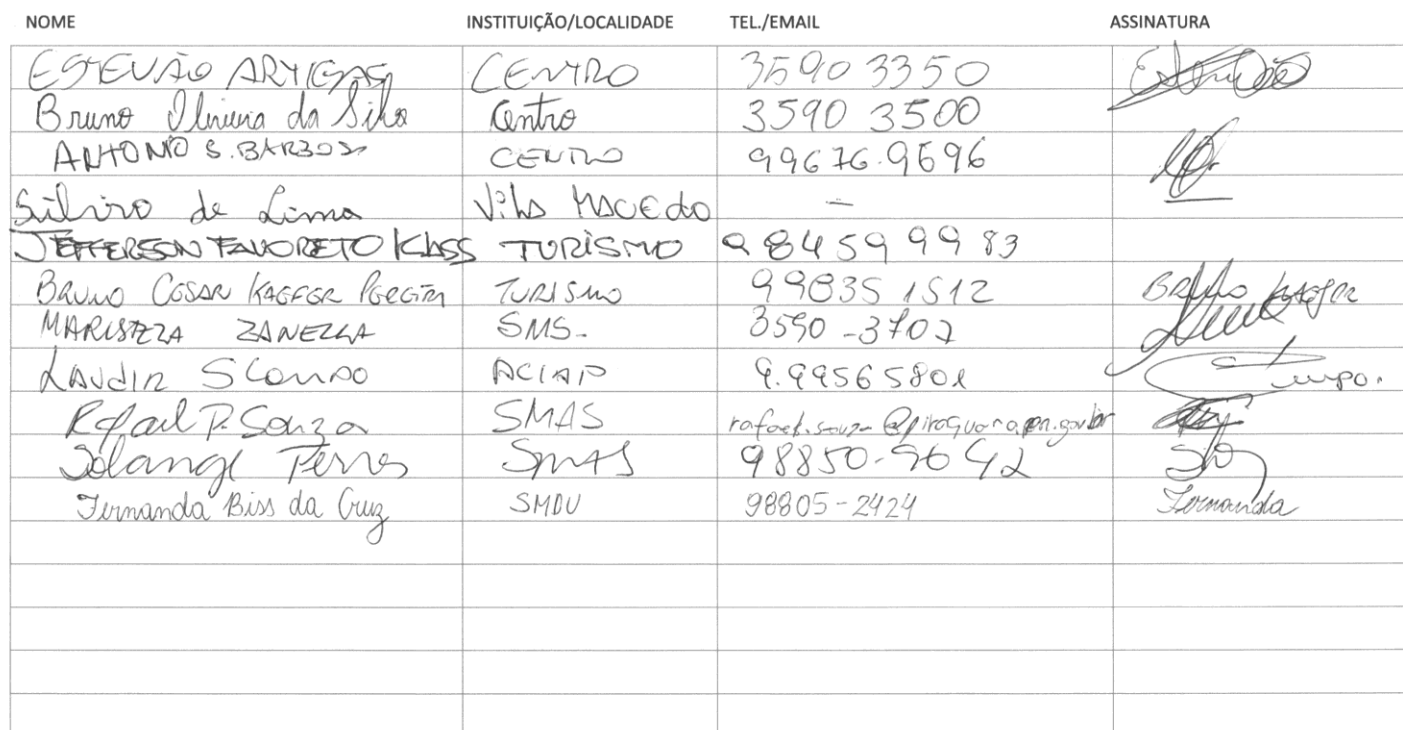 NOME INSTITUIÇÃO/LOCALIDADE TEL./EMAIL ASSINATURA
ESTEVÃO ARTIGAS CENTRO 3590 3350
Bruno Oliveira da Silva Centro 3590 3500
ANTONIO S. BARBOSA CENTRO 99676.9696
Silvino de Lima Vila Macedo -
JEFFERSON FAVORETO KLASS TURISMO 98459 9983
BRUNO CESAR KAEFER TURISMO 99835 1512 BRUNO KAEFER
MARISTELA ZANELLA SMS- 3590-3707
LAUDIR ACIAP 9.99565801
Rafael P. Souza SMAS rafael.souza@piraquara.pr.gov.br
Solange Perres SMAS 98850-9642
Fernanda Biss da Cruz SMDU 98805-2424 Fernanda